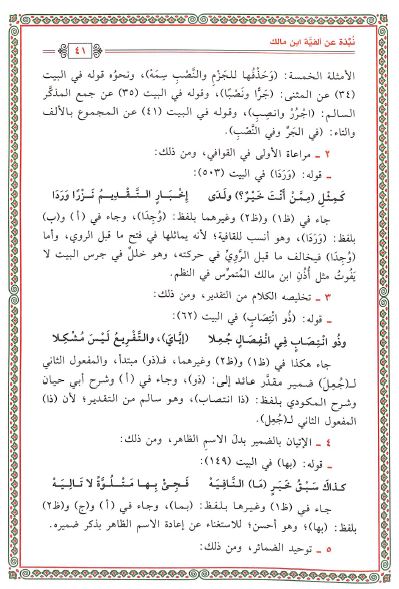 نُبْذة عن ألفيَّة ابن مالك
٤١
الأمثلة الخمسة: (وَحَذْفُها للجَزْمِ والنَّصْبِ سِمَهْ)، ونحوُه قوله في البيت
(٣٤) عن المثنى: (جَرًّا ونَصْبًا)، وقوله في البيت (٣٥) عن جمع المذكَّر
السالم: (اجْرُرْ وانصِبِ)، وقوله في البيت (٤١) عن المجموع بالألف
والتاء: (في الجَرِّ وفي النَّصْبِ).
٢ ـ مراعاة الأولى في القوافي، ومن ذلك:
ـ قوله: (وَرَدَا) في البيت (٥٠٣):
كَمِثْلِ (مِمَّنْ أَنْتَ خَيْرٌ؟) ولَدَى إِخْبَارٍ التَّقْدِيمُ نَزْرًا وَرَدَا
جاء في (ظ١) و(ظ٢) وغيرهما بلفظ: (وُجِدَا)، وجاء في (أ) و(ب)
بلفظ: (وَرَدَا)، وهو أنسب للقافية؛ لأنه يماثلها في فتح ما قبل الروي، وأما
(وُجِدَا) فيخالف ما قبل الرَّوِيِّ في حركته، وهو خللٌ في جرس البيت لا
يَفُوتُ مثل أُذُنِ ابن مالك المُتمرِّس في النظم.
٣ ـ تخليصه الكلام من التقدير، ومن ذلك:
ـ قوله: (ذُو انْتِصَابٍ) في البيت (٦٢):
وذُو انْتِصَابٍ فِي انْفِصَالٍ جُعِلَا (إيَّايَ)، والتَّفْرِيعُ لَيْسَ مُشْكِلا
جاء هكذا في (ظ١) و(ظ٢) وغيرهما، فـ(ذو) مبتدأ، والمفعول الثاني
لـ(جُعِلَ) ضمير مقدَّر عائد إلى: (ذو)، وجاء في (أ) وشرح أبي حيان
وشرح المكودي بلفظ: (ذا انتصاب)، وهو سالم من التقدير؛ لأن (ذا)
المفعول الثاني لـ(جُعِل).
٤ ـ الإتيان بالضمير بدلَ الاسمِ الظاهر، ومن ذلك:
ـ قوله: (بها) في البيت (١٤٩):
كذاكَ سَبْقُ خَبَرٍ (مَا) النَّافِيَهْ فَجِئْ بِهَا مَتْلُوَّةً لا تَالِيَهْ
جاء في (ظ١) وغيرها بلفظ: (بما)، وجاء في (أ) و(ج) و(ظ٢)
بلفظ: (بها)؛ وهو أحسن؛ للاستغناء عن إعادة الاسم الظاهر بذكر ضميره.
٥ ـ توحيد الضمائر، ومن ذلك: